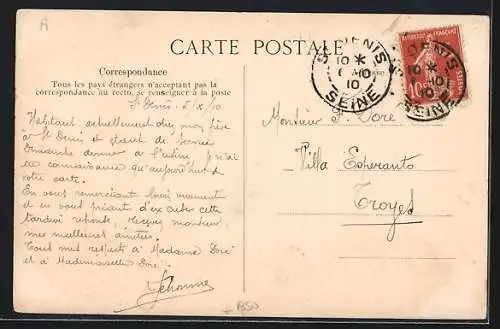 A
CARTE POSTALE
Correspondance
Tous les pays étrangers n'acceptent pas la
correspondance au recto, se renseigner à la poste
St Denis. 5/X/10
Habitant actuellement chez mon père
à St Denis et étant de service
Dimanche dernier à l'usine je n'ai
eu connaissance qu'aujourd'hui de
votre carte.
En vous remerciant bien vivement
et en vous priant d'excuser cette
tardive réponse, recevez monsieur,
mes meilleures amitiés.
Tout mes respects à Madame Doré
et à Mademoiselle Doré.
Monsieur Doré
Villa Esperanto
Troyes
ST DENIS
10 *
10
SEINE
RÉPUBLIQUE FRANÇAISE
10
POSTES
DENIS
10 *
10
SEINE